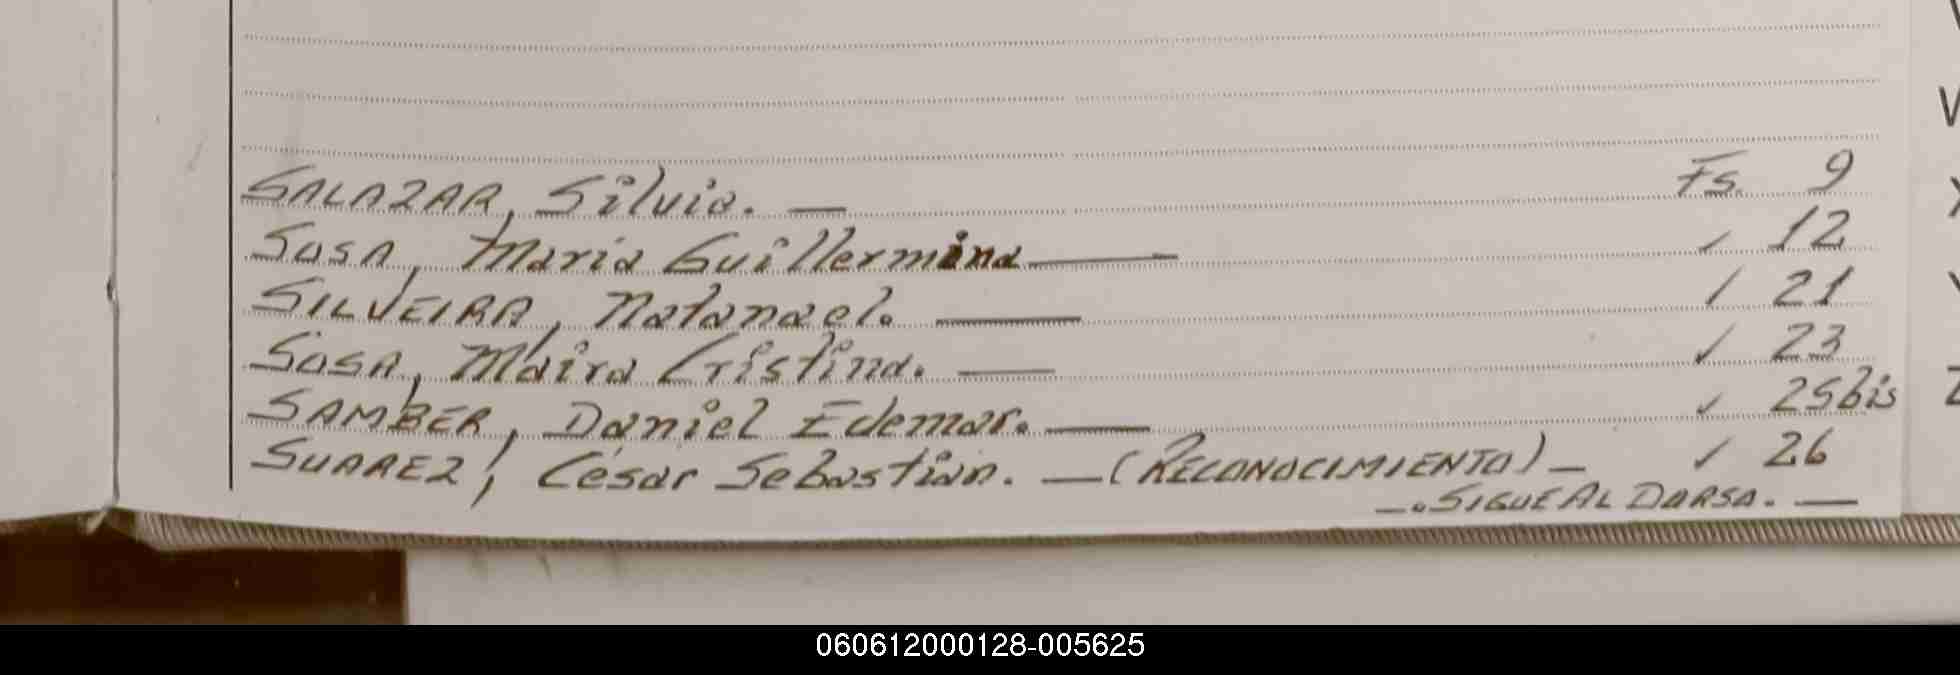 SALAZAR, Silvia. — Fs. 9
SOSA, Maria Guillermina — / 12
SILVEIRA, Natanael. — / 21
SOSA, Maira Cristina. — / 23
SAMBER, Daniel Edemar. — / 25bis
SUAREZ, César Sebastian. — (RECONOCIMIENTO) — / 26
—. SIGUE AL DORSO. —
060612000128-005625